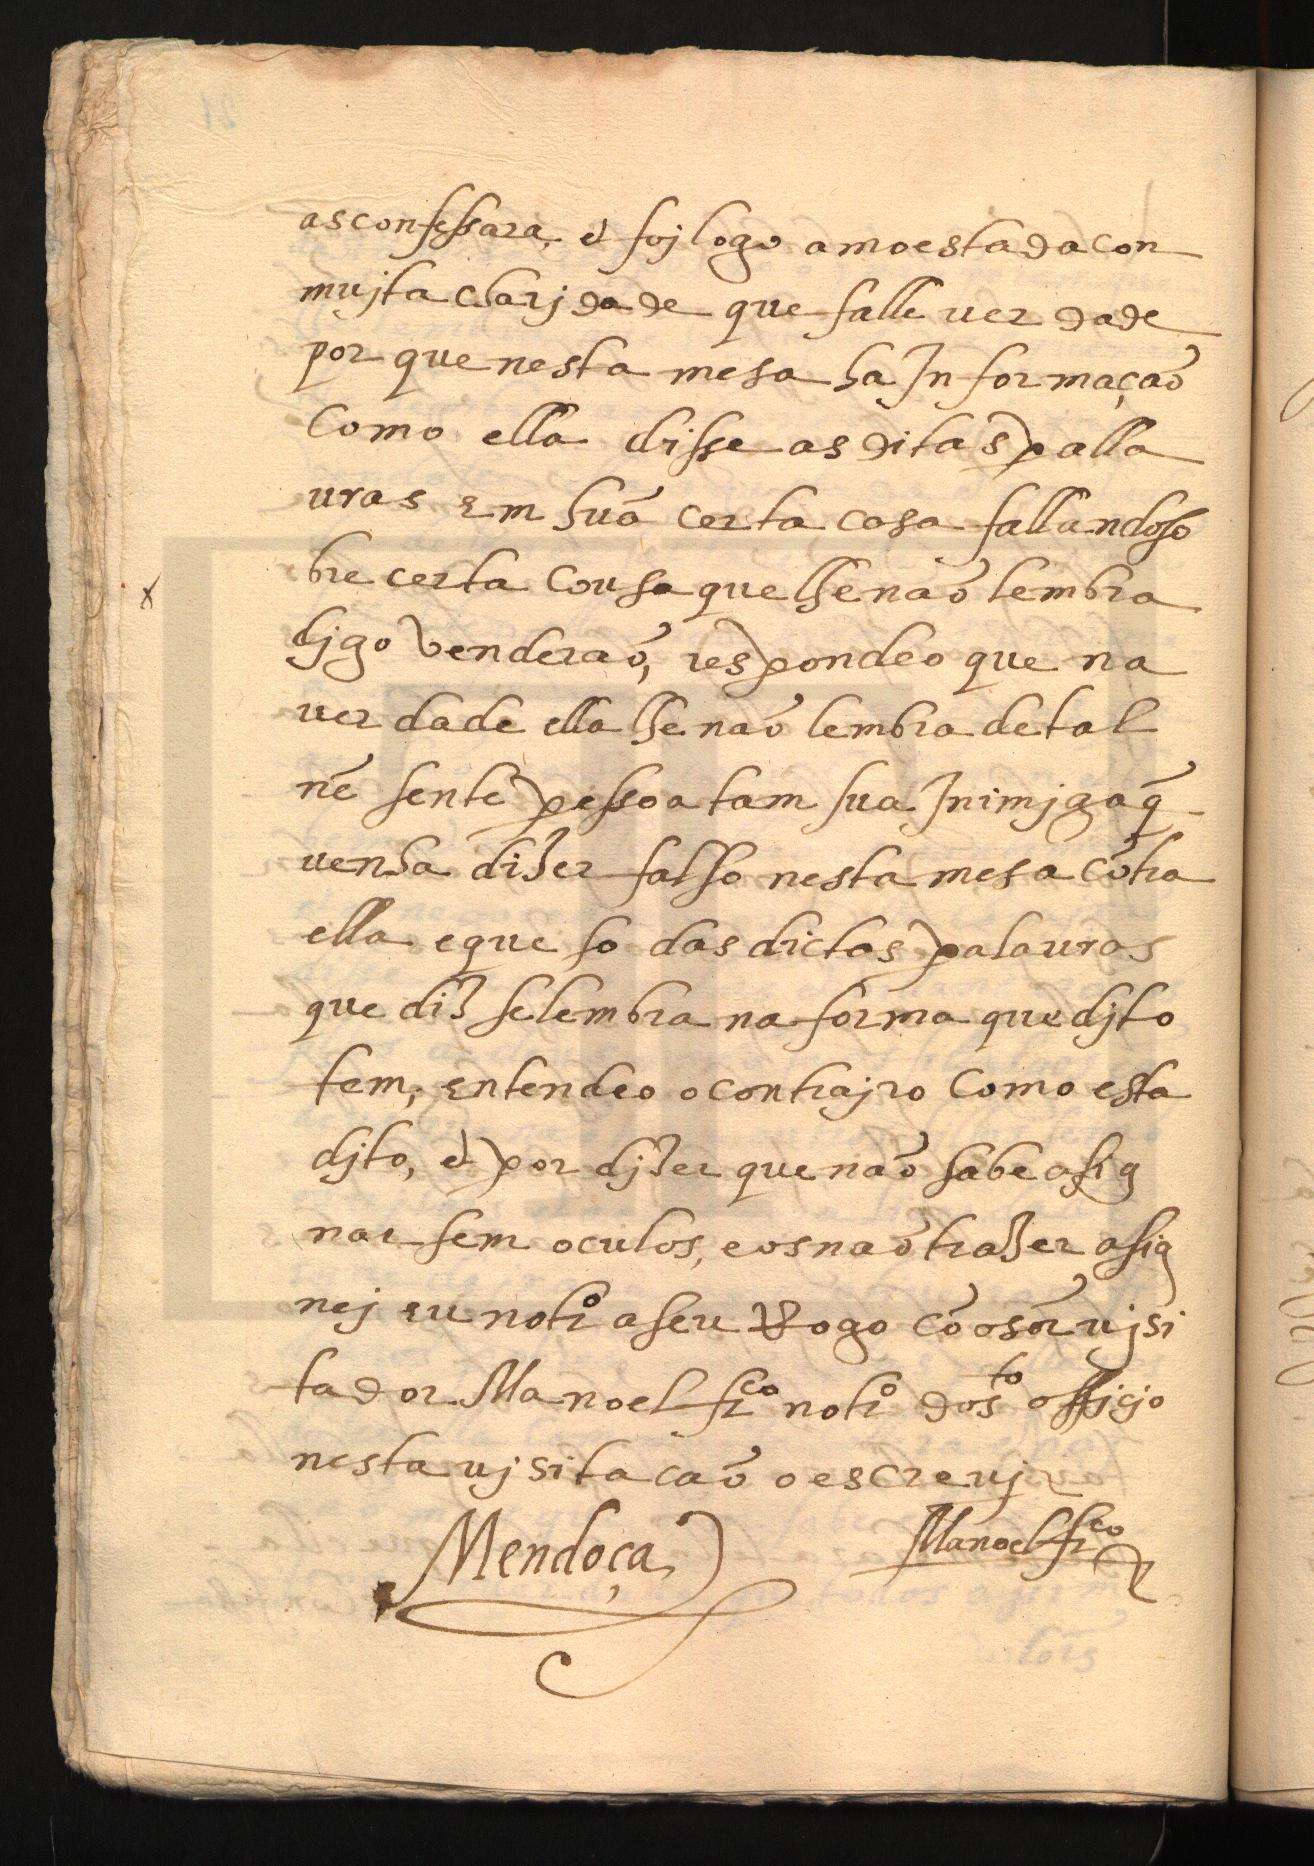 as confessara, e foj logo amoestada con
mujta charjdade que falle verdade
por que nesta mesa ha Informaçaõ
como ella disse as ditas palla
uras Em huã certa casa fallando so
bre certa cousa que lhe naõ lembra
djgo venderaõ, respondeo que na
uerdade ella lhe naõ lembra de tal
nẽ sente pessoa tam sua Inimjga q̃
uenha dizer falso nesta mesa cõtra
ella e que so das dictas palauras
que diz se lembra na forma que djto
tem, Entendeo o contrajro como esta
djto, e por djzer que naõ sabe asig
nar sem oculos, e os naõ trazer asig
nej eu notr.º a seu Rogo cõ o s.ºr ujsi
tador Manoel fr.co notr.º do s.to officio
nesta ujsitacaõ o escreuj
Mendoça
Manoel fr.co
x